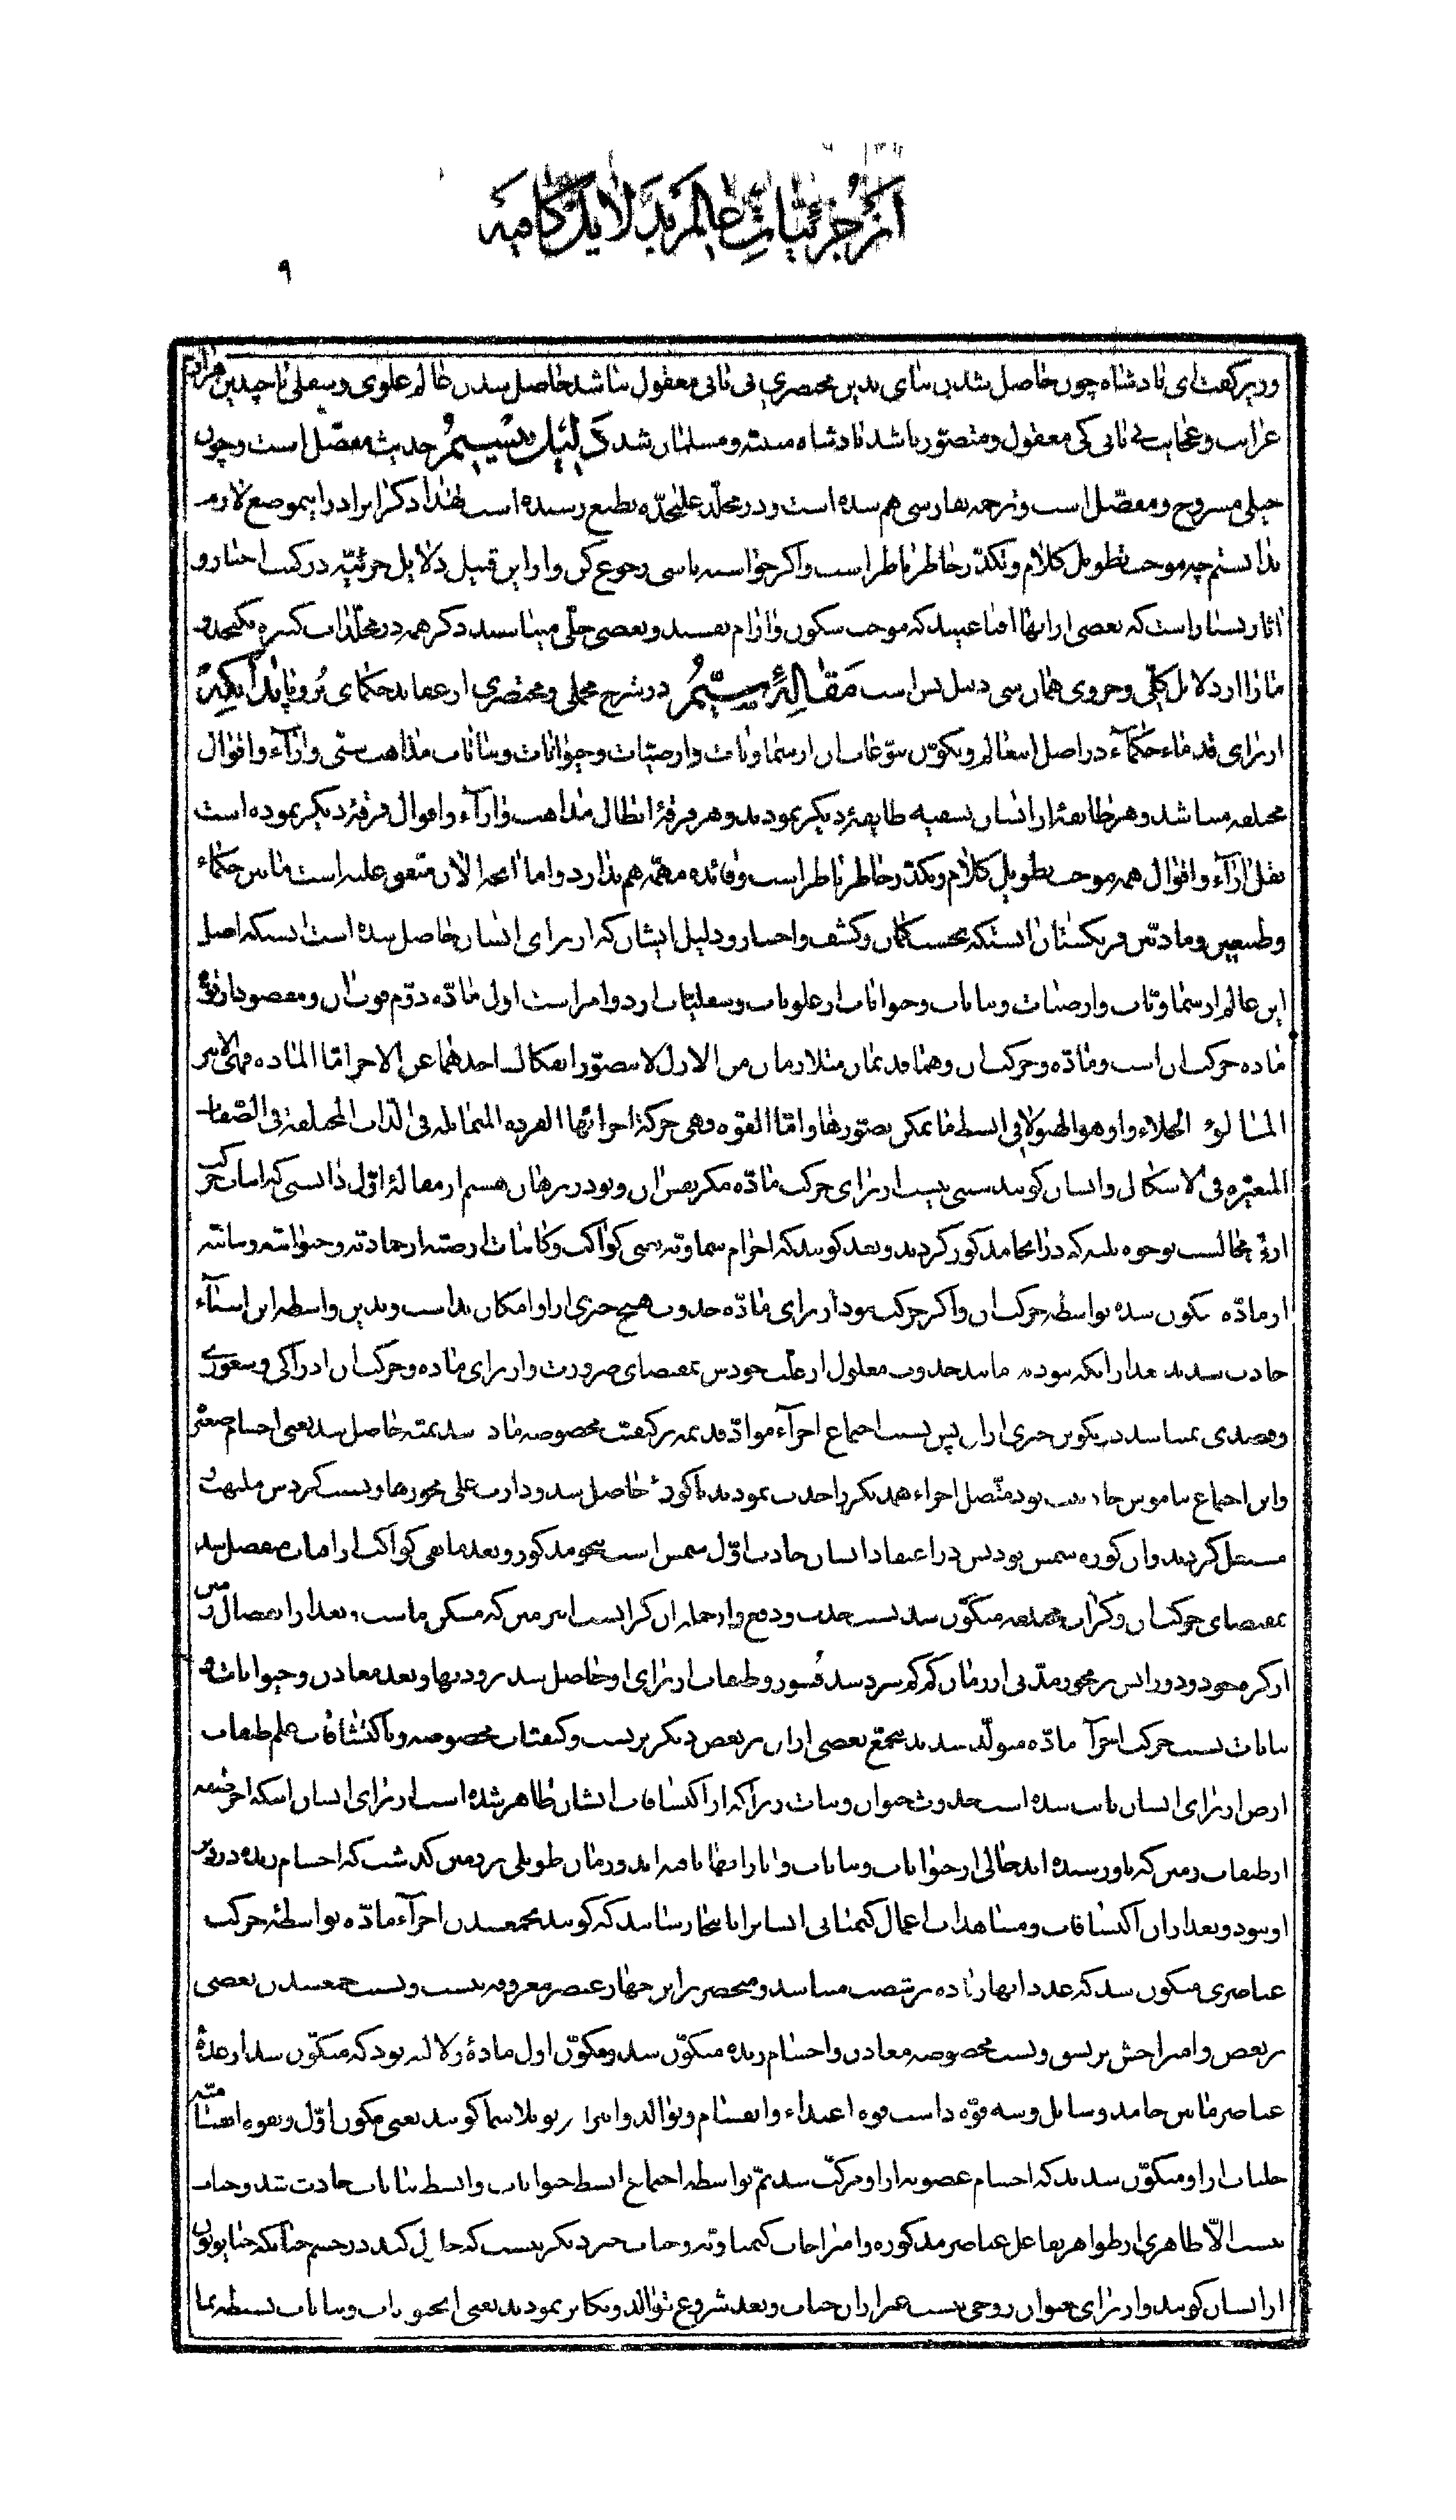 از جزئیات عالم بدلایل کافیه
۹
وزیر کفت ای پادشاه چون حاصل شدن بنای بدین مختصری بی بانی معقول نباشد حاصل شدن عالم علوی و سفلی با چندین هزاران
غرایب و عجایب بی بانی کی معقول و متصور باشد پادشاه متنبه و مسلمان شد دلیل بیسیم حدیث مفضل است و چون
خیلی مشروح و مفصل است و ترجمه بفارسی هم شده است و در مجلد علیحده بطبع رسیده است لهذا ذکر انرا در اینموضع لازم
ندانستم چه موجب تطویل کلام و تکدر خاطر ناظر است و اکر خواسته باشی رجوع کن و از این قبیل دلایل جزئیه در کتب اخبار و
اثار بسیار است که بعضی از انها اقناعیند که موجب سکون و ارام نفسند و بعضی جدلی میباشند ذکر همه در مجلدات کثیره نکنجد و
ما را از دلایل کلی و جزوی همان سی دلیل بس است مقاله سیم در شرح مجملی و مختصری از عقاید حکمای یروپا بدانکه
از برای قدماء حکماء در اصل اینعالم و تکون متوغلات ان از سماویات و ارضیات و حیوانات و نباتات مذاهب شتی و اراء و اقوال
مختلفه میباشد و هر طایفه از انسان تسفیه طایفه دیکر نمودند و هر فرقه ابطال مذاهب و اراء و اقوال فرقه دیکر نموده است
نقل اراء و اقوال همه موجب تطویل کلام و تکدر خاطر ناظر است و فائده مهمه هم ندارد و اما انچه الان متفق علیه است مابین حکماء
و طبیعیین و مادیین فرنکستان انستکه بحسب کمان و کشف و اختبار و دلیل ایشان که از برای انسان حاصل شده است اینستکه اصل
این عالم از سماویات و ارضیات و نباتات و حیوانات از علویات و سفلیات از دو امر است اول ماده دوم قوت ان و مقصود از قوه
ماده حرکت ان است و ماده و حرکت ان و هما قدیمان متلازمان من الازل لا یتصور انفکاک احدهما عن الاخر اما الماده فهی الاثیر
المالئ الخلاء و او هو الهیولا فی ابسط ما یمکن تصورها و اما القوه و هی حرکة اجزائها الفرده المتماثله فی الذات المختلفة فی الصفات
المتغیره فی الاشکال و انسان کویند سببی نیست از برای حرکت ماده مکر نفس ان و تو در برهان هشتم از مقالة اول دانستی که اثبات حرکت
ازلی محالست بوجوه ثلثه که در انجا مذکور کردید و بعد کویند که اجرام سماویه یعنی کواکب و کائنات ارضیه از جمادیه و حیوانیه و نباتیه
از ماده تکون شده بواسطه حرکت ان و اکر حرکت نبود از برای ماده حدوث هیچ چیزی از او امکان نداشت و بدین واسطه این اشیاء
حادث شدند بعد از انکه نبودند مانند حدوث معلول از علت خودش بمقتضای ضرورت و از برای ماده و حرکت ان ادراکی و شعوری
و قصدی نمیباشد در تکوین چیزی از ان پس بسبب اجتماع اجزاء مواد قدیمه بر کیفیت مخصوصه ماده سدیمیه حاصل شد یعنی اجسام صغیر
و این اجتماع بناموس جاذبیت بود متصل اجزاء همدیکر را جذب نمودند تا کوره حاصل شد و دارت علی محورها و بسبب کردش ملتهب و
مشتعل کردید و ان کوره شمس بود پس در اعتقاد انسان حادث اول شمس است بنحو مذکور و بعد مابقی کواکب از انات منفصل شد
بمقتضای حرکت ان و کرات مختلفه متکون شد بسبب جذب و دفع و از جمله ان کرات است این زمین که مسکن ماست و بعد از انفصال زمین
از کره خود و دورانش بر محور مدتی از زمان کم کم سرد شد قشور و طبقات از برای او حاصل شد بر رویها و بعد معادن و حیوانات و
نباتات بسبب حرکت اجزاء ماده متولد شدند بتجمع بعضی از ان بر بعض دیکر بر نسب و کیفیات مخصوصه و باکتشافات علم طبقات
ارض از برای انسان ثابت شده است حدوث حیوان و نبات زیرا که از اکتشافات ایشان ظاهر شده است از برای انسان اینکه اخر طبقه
از طبقات زمین که باو رسیده اند خالی از حیوانات و نباتات و اثار انها یافته اند و زمان طویلی بر زمین کذشت که اجسام زنده در روی
او نبود و بعد از ان اکتشافات و مشاهدات اعمال کیمیائی انسانرا بانجا رسانید که کویند بتجمع شدن اجزاء ماده بواسطه حرکت
عناصری متکون شد که عدد انها زیاده بر شصت میباشد و منحصر را بر چهار عنصر معروفه نیست و بسبب جمع شدن بعضی
بر بعض و امتزاجش بر نسق و نسب مخصوصه معادن و اجسام زنده متکون شد و متکون اول ماده زلالیه بود که متکون شد از عده
عناصر مابین جامد و سایل و سه قوه داشت قوه اغتذاء و انقسام و توالد و انرا پروتوپلاسما کویند یعنی مکون اول و بقوه انقسامیه
خلیات از او متکون شدند که اجسام عضویه از او مرکب شد ثم بواسطه اجتماع ابسط حیوانات و ابسط نباتات حادث شد و حیات
نیست الا ظاهری از ظواهر تفاعل عناصر مذکوره و امتزاجات کیمیاویه و حیات چیز دیکر نیست که حلول کند در جسم چنانکه حیاتیون
از انسان کویند و از برای حیوان روحی نیست غیر از ان حیات و بعد شروع بتوالد و تکاثر نمودند یعنی ان حیوانات و نباتات بسیطه بما